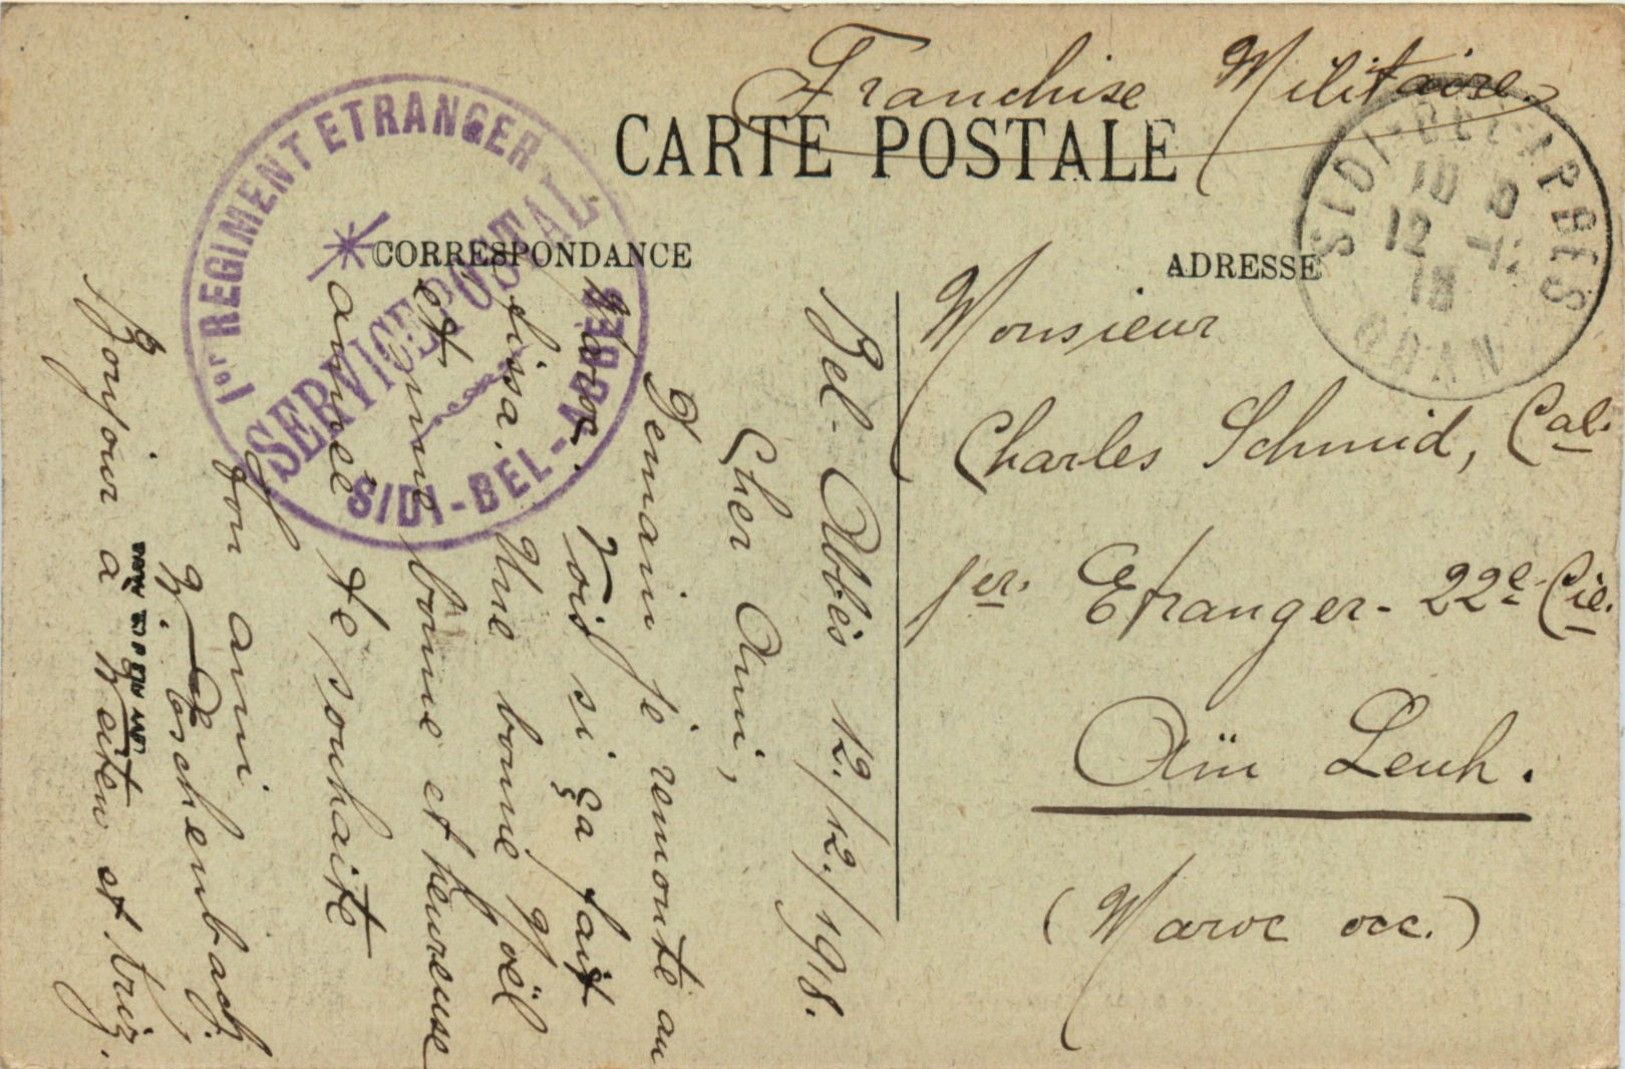 Franchise Militaire.
CARTE POSTALE
CORRESPONDANCE
ADRESSE
1er REGIMENT ETRANGER
SERVICE POSTAL
SIDI-BEL-ABBES
SIDI-BEL-ABBES
12
18
ORAN
Monsieur
Charles Schmid, Cal.
1er. Etranger - 22e Cie.
Aïn Leuh.
(Maroc occ.)
Bel-Abbès 12./12./1918.
Cher Ami,
Demain je remonte au
Maroc. Vois si ça fait
fissa. Une bonne Noël
et une bonne et heureuse
année te souhaite
ton ami
Eschenbach.
Bonjour à et